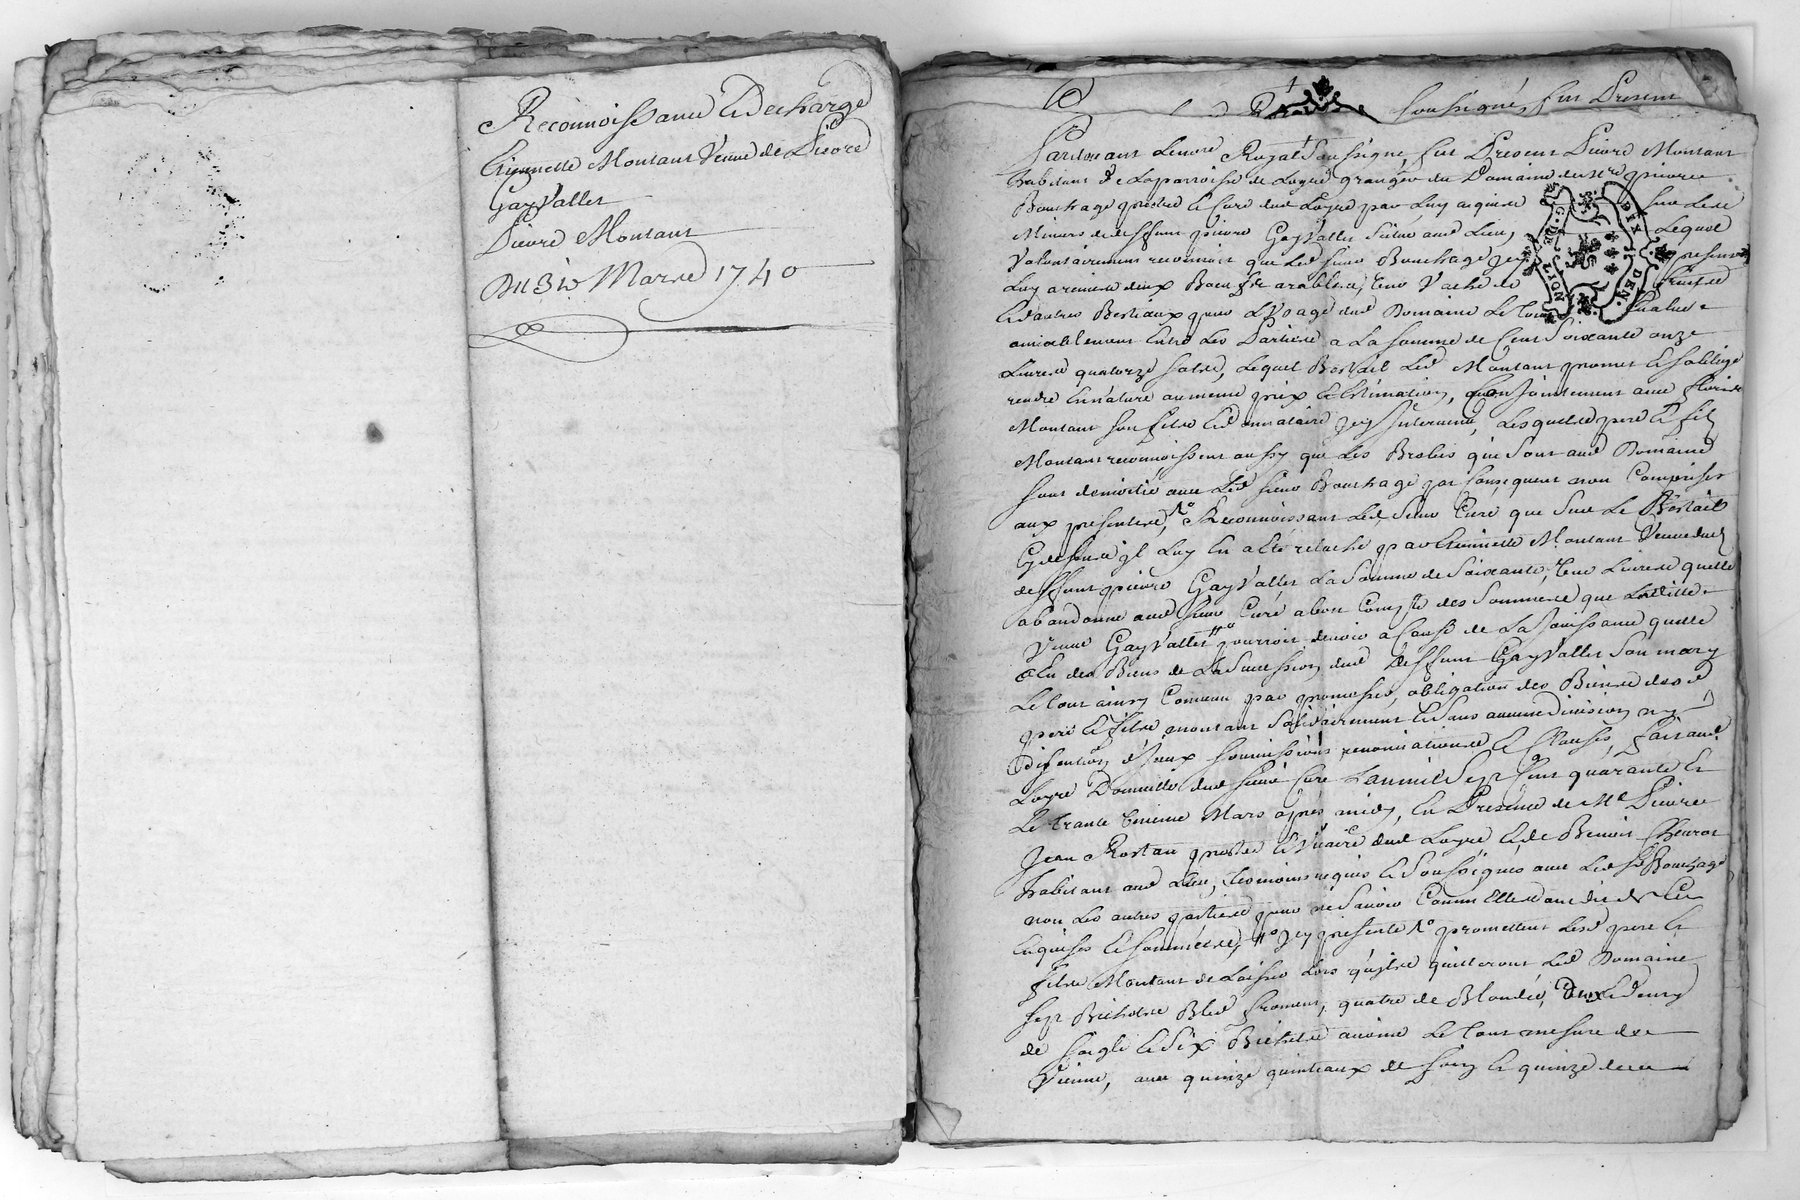 Reconnoissance Et decharge
Etiennette Montant Veuve de Pierre
Gayvallet
Pierre Montant
Du 31e Mars 1740
1
soussigné, fut Present
Pardevant Lenore Royal soussigné, fut Present Pierre Montant
habitant de Laparroisse de Loyre granger du Domaine de Mre pierre
Bouchage prestre Et Curé dud Loyre par Luy aquis sur Les
Mineurs de deffunt pierre Gayvallet dud Lieu, Lequel
Volontairement reconnoit que Led sieur Bouchage
Luy a remis deux Boeufs arables, Une Vache
Et dautres Bestiaux pour Lusage dud Domaine Le tout Evalué
amiablement Entre Les Parties a La somme de Cent Soixante onze
Livres quatorze sols, Lequel Bestail Led Montant promet Et soblige
rendre En nature au meme prix Et Estimation, Conjointement avec
Montant son fils Et donnataire jcy Intervenu, Lesquels pere Et fils
Montant reconnoissent aussy que Les Brebis qui sont aud Domaine
sont de moitié avec Led sieur Bouchage par Consequent non Comprises
aux presentes, Reconnoissant Led sieur Curé que sur Le Bestail
Cy dessus jl Luy En a Eté relaché par Etiennette Montant Veuve dud
deffunt pierre Gayvallet La Somme de Soixante, Une Livres quelle
abandonne aud sieur Curé a bon Compte des Sommes que Laditte
Veuve Gayvallet pourroit devoir a Cause de La Jouissance quelle
a Eu des Biens de La Succession dud deffunt Gayvallet Son mary
Le tout ainsy Convenu par promesses, obligation des Biens desd
pere Et fils montant Solidairement Et Sans aucune division ny
discution d'Jceux soumissions renonciations Et Clauses, fait aud
Loyre Domicille dud sieur Curé Lan mil Sept Cent quarante Et
Le trante Unieme Mars apres midy, En Presence de Mre Pierre
Jean Rostan prestre Et Vicaire dud Loyre Et de Benoit
habitant aud Lieu, temoins requis Et Soussignés avec Led Sr Bouchage
non Les autres parties pour ne Savoir Comme Elles ont dit de Ce
Enquises Et sommées, jcy presente promettent Lesd pere Et
fils Montant de Laisser Lors quils quitteront Led Domaine
sept Bichets Bled froment, quatre de Blondée, deux Et demy
de soigle Et Six Bichets avoine Le tout mesure de
Vienne, avec quinze quintaux de foin Et quinze de